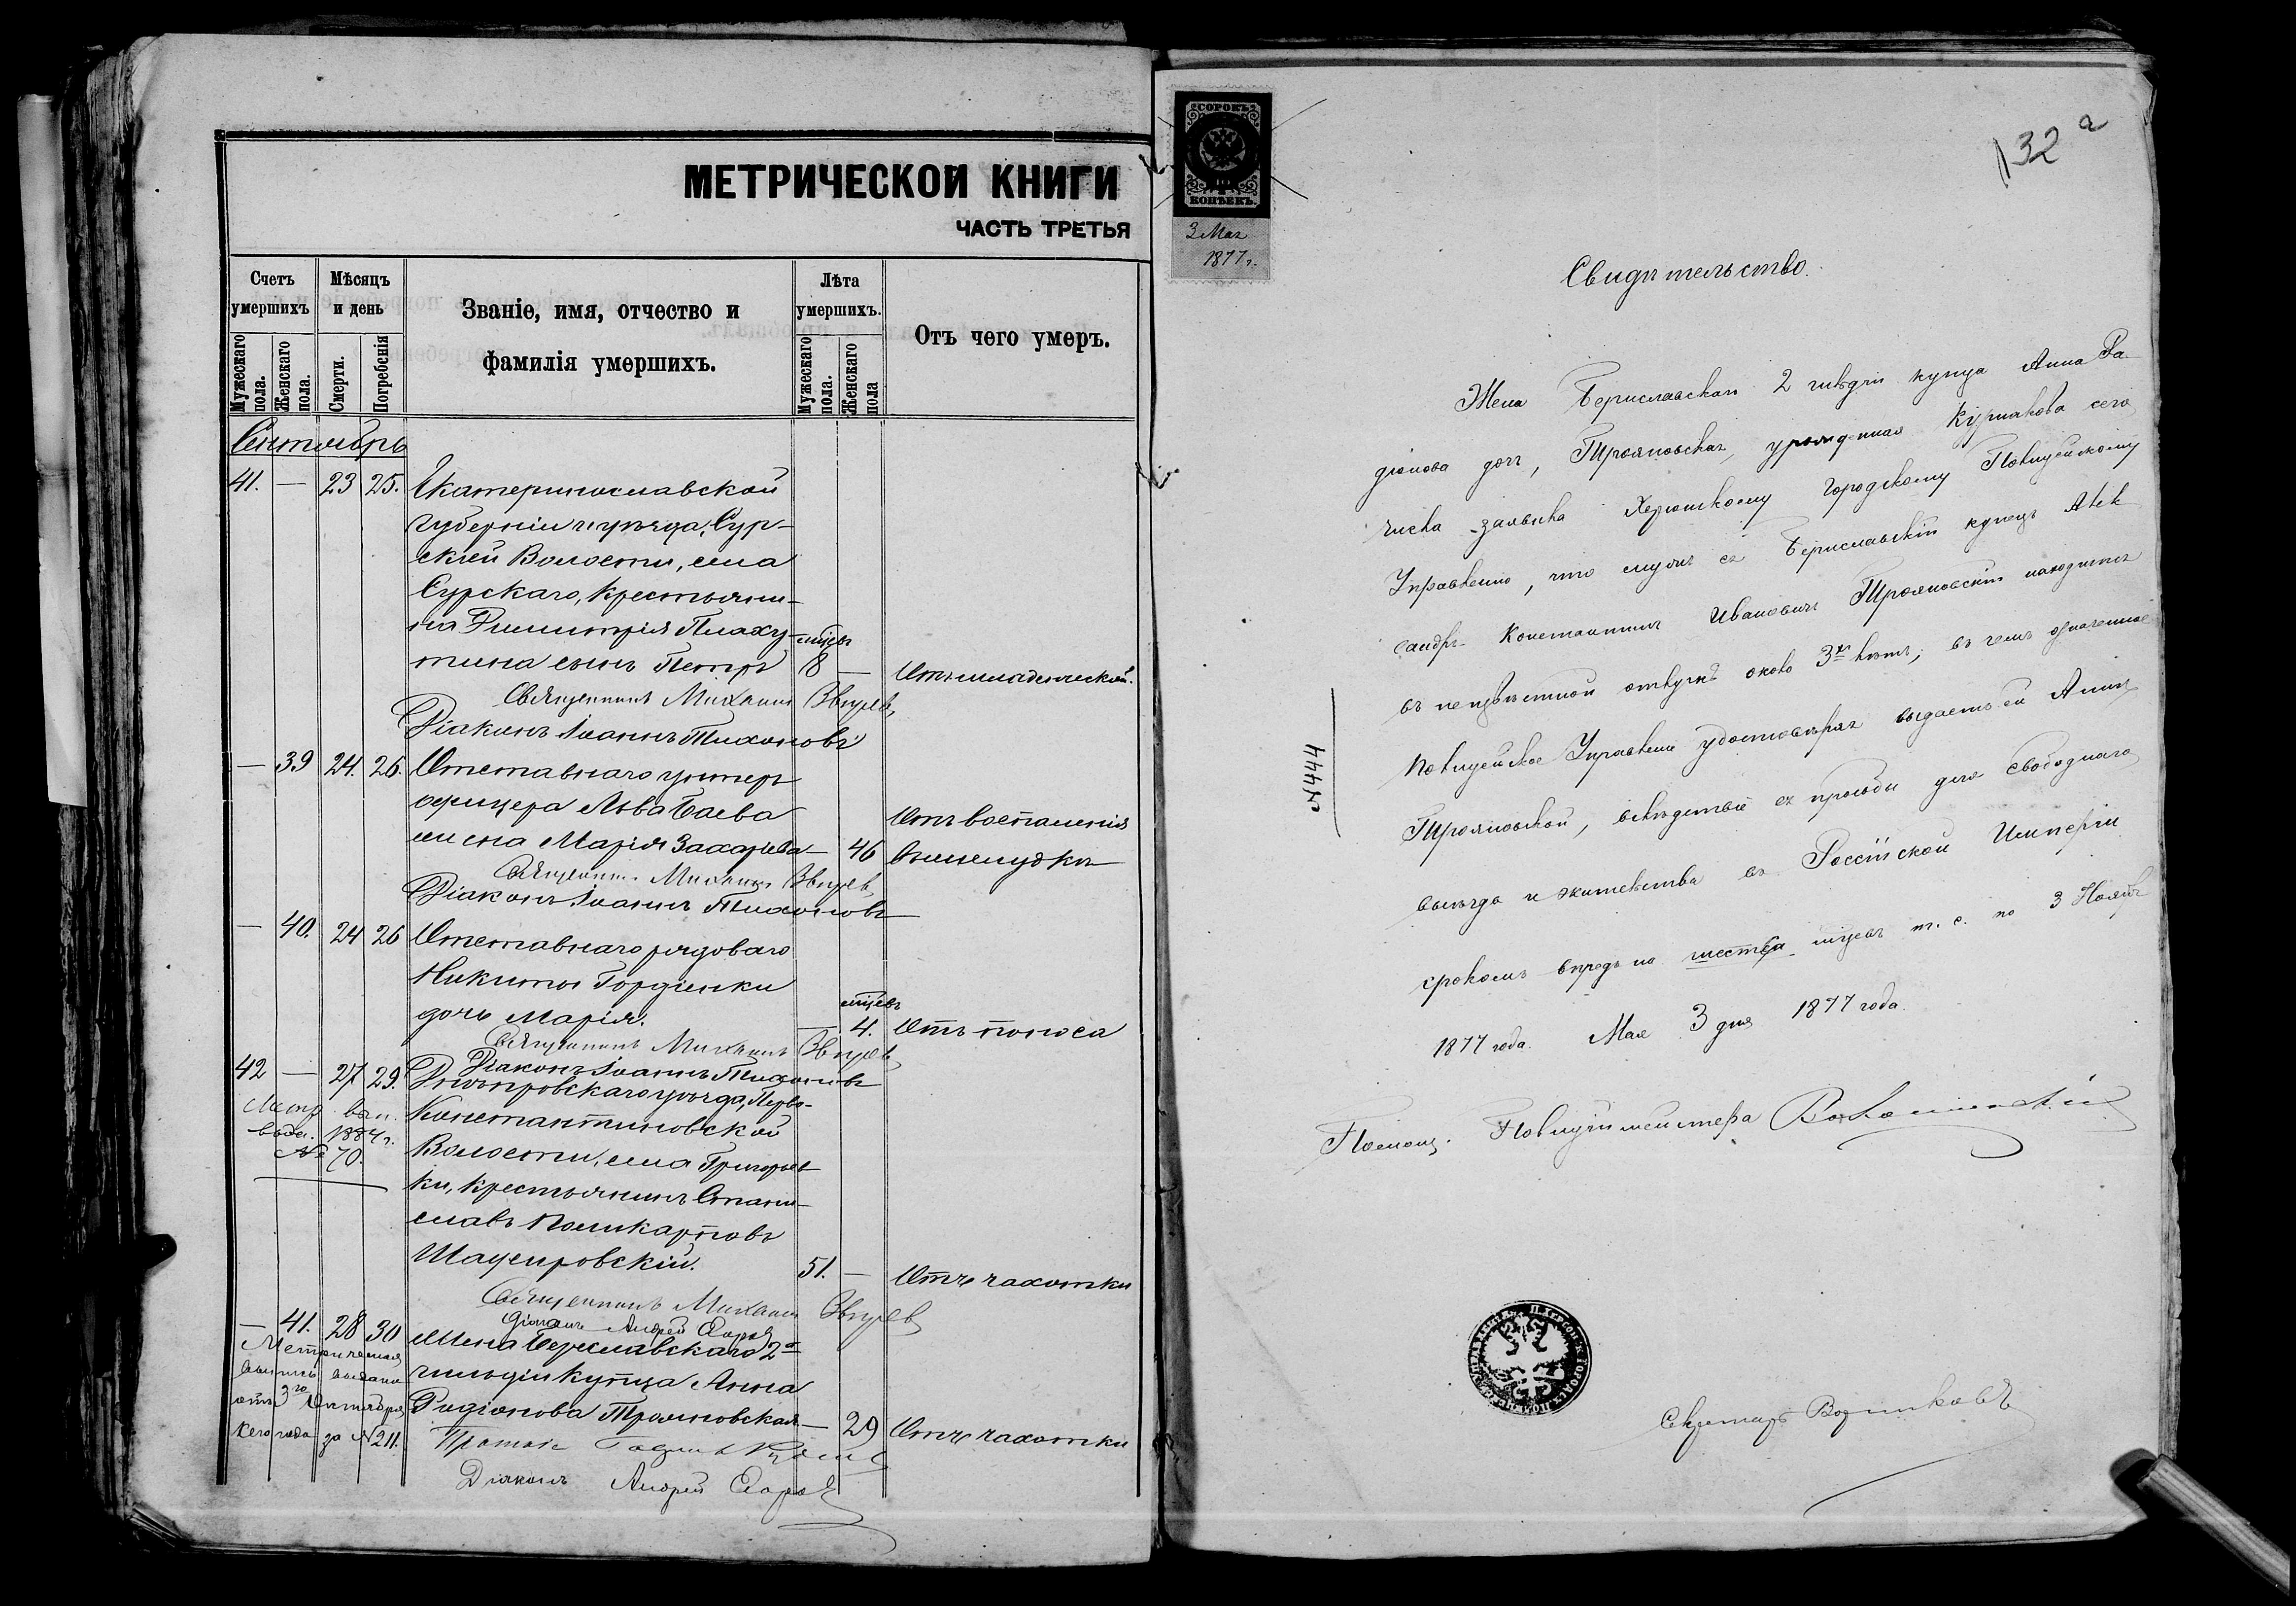 МЕТРИЧЕСКОЙ КНИГИ
ЧАСТЬ ТРЕТЬЯ
Счетъ умершихъ
Мужескаго пола.
Женскаго пола.
Мѣсяцъ и день
Смерти.
Погребенія
Званіе, имя, отчество и
фамилія умершихъ.
Лѣта умершихъ.
Мужескаго пола.
Женскаго пола
Отъ чего умеръ.
Сентябрь
41. — 23 25. Екатеринославской
губерніи и уѣзда, Сур-
ской Волости, села
Сурскаго, крестьяни-
на Димитрія Плаху- мѣсяц
тина сынъ Петръ 8 — Отъ младенческой.
Священникъ Михаилъ Звѣревъ
Діаконъ Іоаннъ Тихоновъ
— 39 24. 26. Отставнаго унтеръ
офицера Льва Баева Отъ воспаленія
жена Марія Захарьева — 46 въ желудкѣ
Священникъ Михаилъ Звѣревъ
Діаконъ Іоаннъ Тихоновъ
— 40. 24 26 Отставнаго рядоваго
Никиты Гордіенки мѣсяц
дочь Марія. — 4. Отъ поноса
Священникъ Михаилъ Звѣревъ
Діаконъ Іоаннъ Тихоновъ
42 — 27 29. Днѣпровскаго уѣзда, Перво-
Метр. вып. Константиновской
выда. 1884 г. Волости, села Григорьев
№ 70. ки, крестьянинъ Стани-
славъ Поликарповъ
Шацировскій. 51. — Отъ чахотки
Священникъ Михаилъ Звѣревъ
діаконъ Андрей
— 41. 28 30 Жена Береславскаго 2й
Метрическая
выпись выдана гильдіи купца Анна
отъ 3го Октября Родіонова Трояновская — 29 Отъ чахотки
сего года за №211.
Діаконъ Андрей
СОРОКЪ
40
КОПѢЕКЪ.
3 Мая
1877 г.
132 а
Свидѣтельство.
Жена Бериславскаго 2 гильдіи купца Анна Ра-
діонова дочь, Трояновская, урожденная Курмакова сего
числа заявила Херсонскому Городскому Полицейскому
Управленію, что мужъ ея Бериславскій купецъ Алек
сандръ Константинъ Ивановичъ Трояновскій находится
въ неизвѣстной отлучкѣ около 3х лѣтъ, въ чемъ означенное
Полицейское Управленіе удостовѣряя выдаетъ ей Аннѣ
Трояновской, вслѣдствіе ея просьбы для свободнаго
выѣзда и жительства въ Россійской Имперіи
срокомъ впредь на шесть мѣсяцевъ т. е. по 3 Ноября
1877 года. Мая 3 дня 1877 года.
№ 444
Помощ. Полиціймейстера
Секретарь